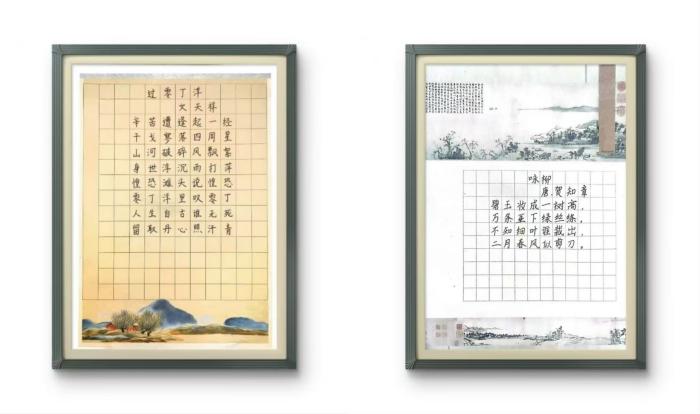 过零丁洋
文天祥
辛苦遭逢起一经
干戈寥落四周星
山河破碎风飘絮
身世浮沉雨打萍
惶恐滩头说惶恐
零丁洋里叹零丁
人生自古谁无死
留取丹心照汗青
咏柳
唐.贺知章
碧玉妆成一树高,
万条垂下绿丝绦。
不知细叶谁裁出,
二月春风似剪刀。